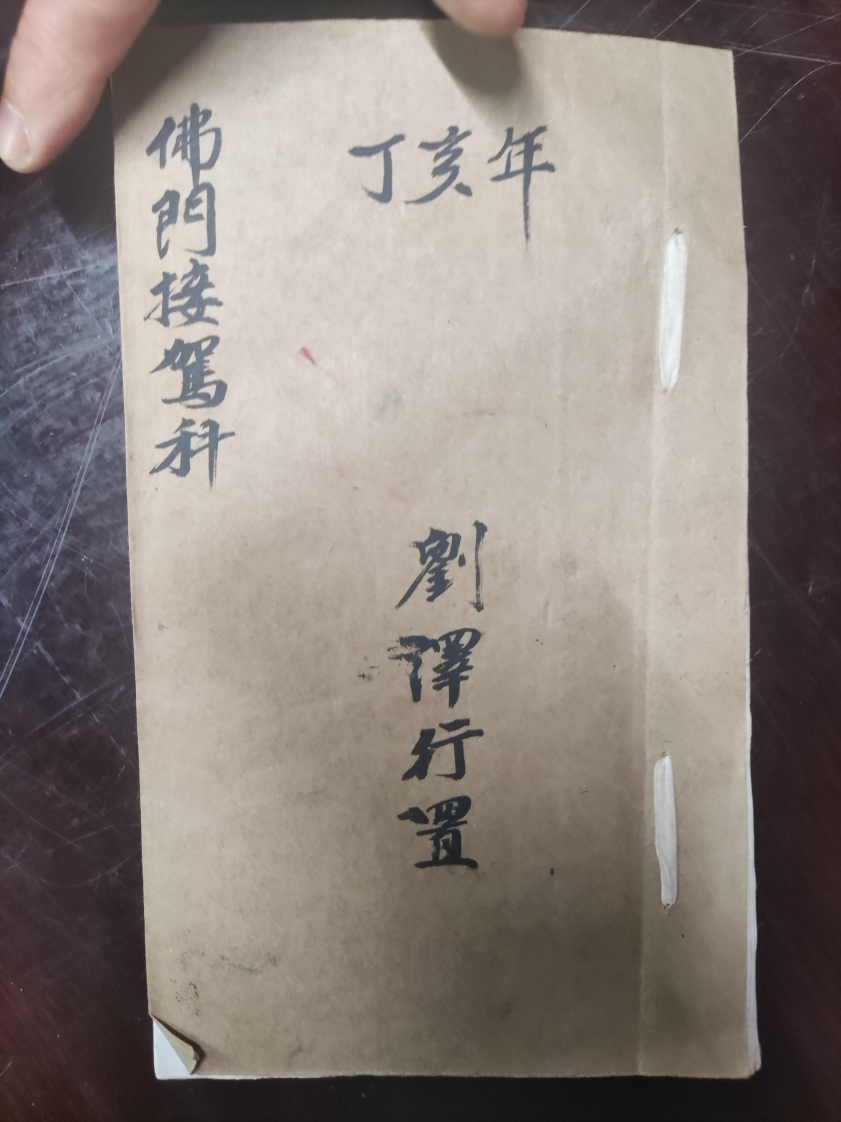 丁亥年
劉澤行置
佛門接駕科